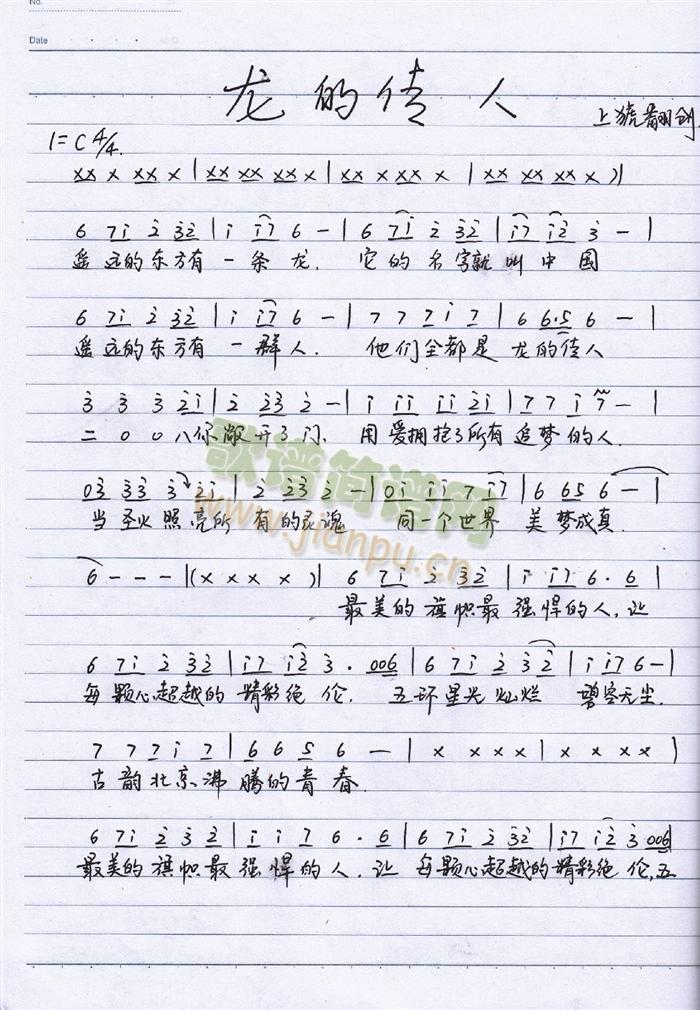 No.
Date
龙的传人
上猇翻创
1=C 4/4.
xx x xx x | xx xx xx x | xx xx xx x | xx xx xx x )|
6 7i 2 32 | i i7 6 - | 6 7i 2 32 | i7 i2 3 - |
遥远的东方有一条龙. 它的名字就叫中国
6 7i 2 32 | i i7 6 - | 7 7 7 i 7 | 6 6·5 6 - |
遥远的东方有一群人. 他们全都是龙的传人
3 3 3 2i | 2 23 2 - | i ii ii 2i | 7 7 i 7 - |
二00八你敞开了门、用爱拥抱了所有追梦的人.
03 33 3 2i | 2 23 2 - | 0i ii 7 i7 | 6 65 6 - |
当圣火照亮所有的灵魂 同一个世界 美梦成真.
6 - - - |(x x x x )| 6 7i 2 32 | i i7 6· 6 |
最美的旗帜最强悍的人,让
6 7i 2 32 | i7 i2 3 · 006 | 6 7i 2 32 | i i7 6 - |
每颗心超越的精彩绝伦. 五环星光灿烂 碧空无尘.
7 7 7 i 7 | 6 6 5 6 — | x x x x | x x x x )
古韵北京沸腾的青春.
6 7i 2 3 2 | i i 7 6 · 6 | 6 7i 2 32 | i7 i2 3 006 |
最美的旗帜最强悍的人,让每颗心超越的精彩绝伦,五
歌谱简谱网
www.jianpu.cn